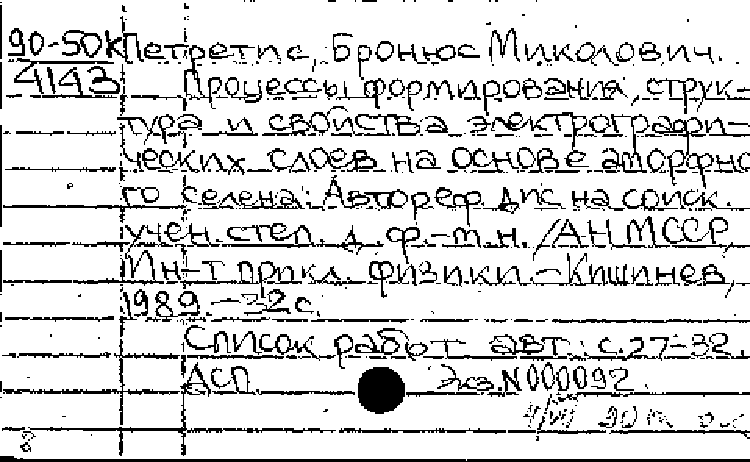 90-50к Петретис, Бронюс Миколович.
4143 Процессы формирования, струк-
тура и свойства электрографи-
ческих слоев на основе аморфно
го селена: Автореф. дис на соиск.
учен. степ. д. ф.-т.н. /АН МССР,
Ин-т прикл. физики. -Кишинев,
1989. -32 с.
Список работ авт.: с.27-32.
ДСП Экз.N 000092.
90